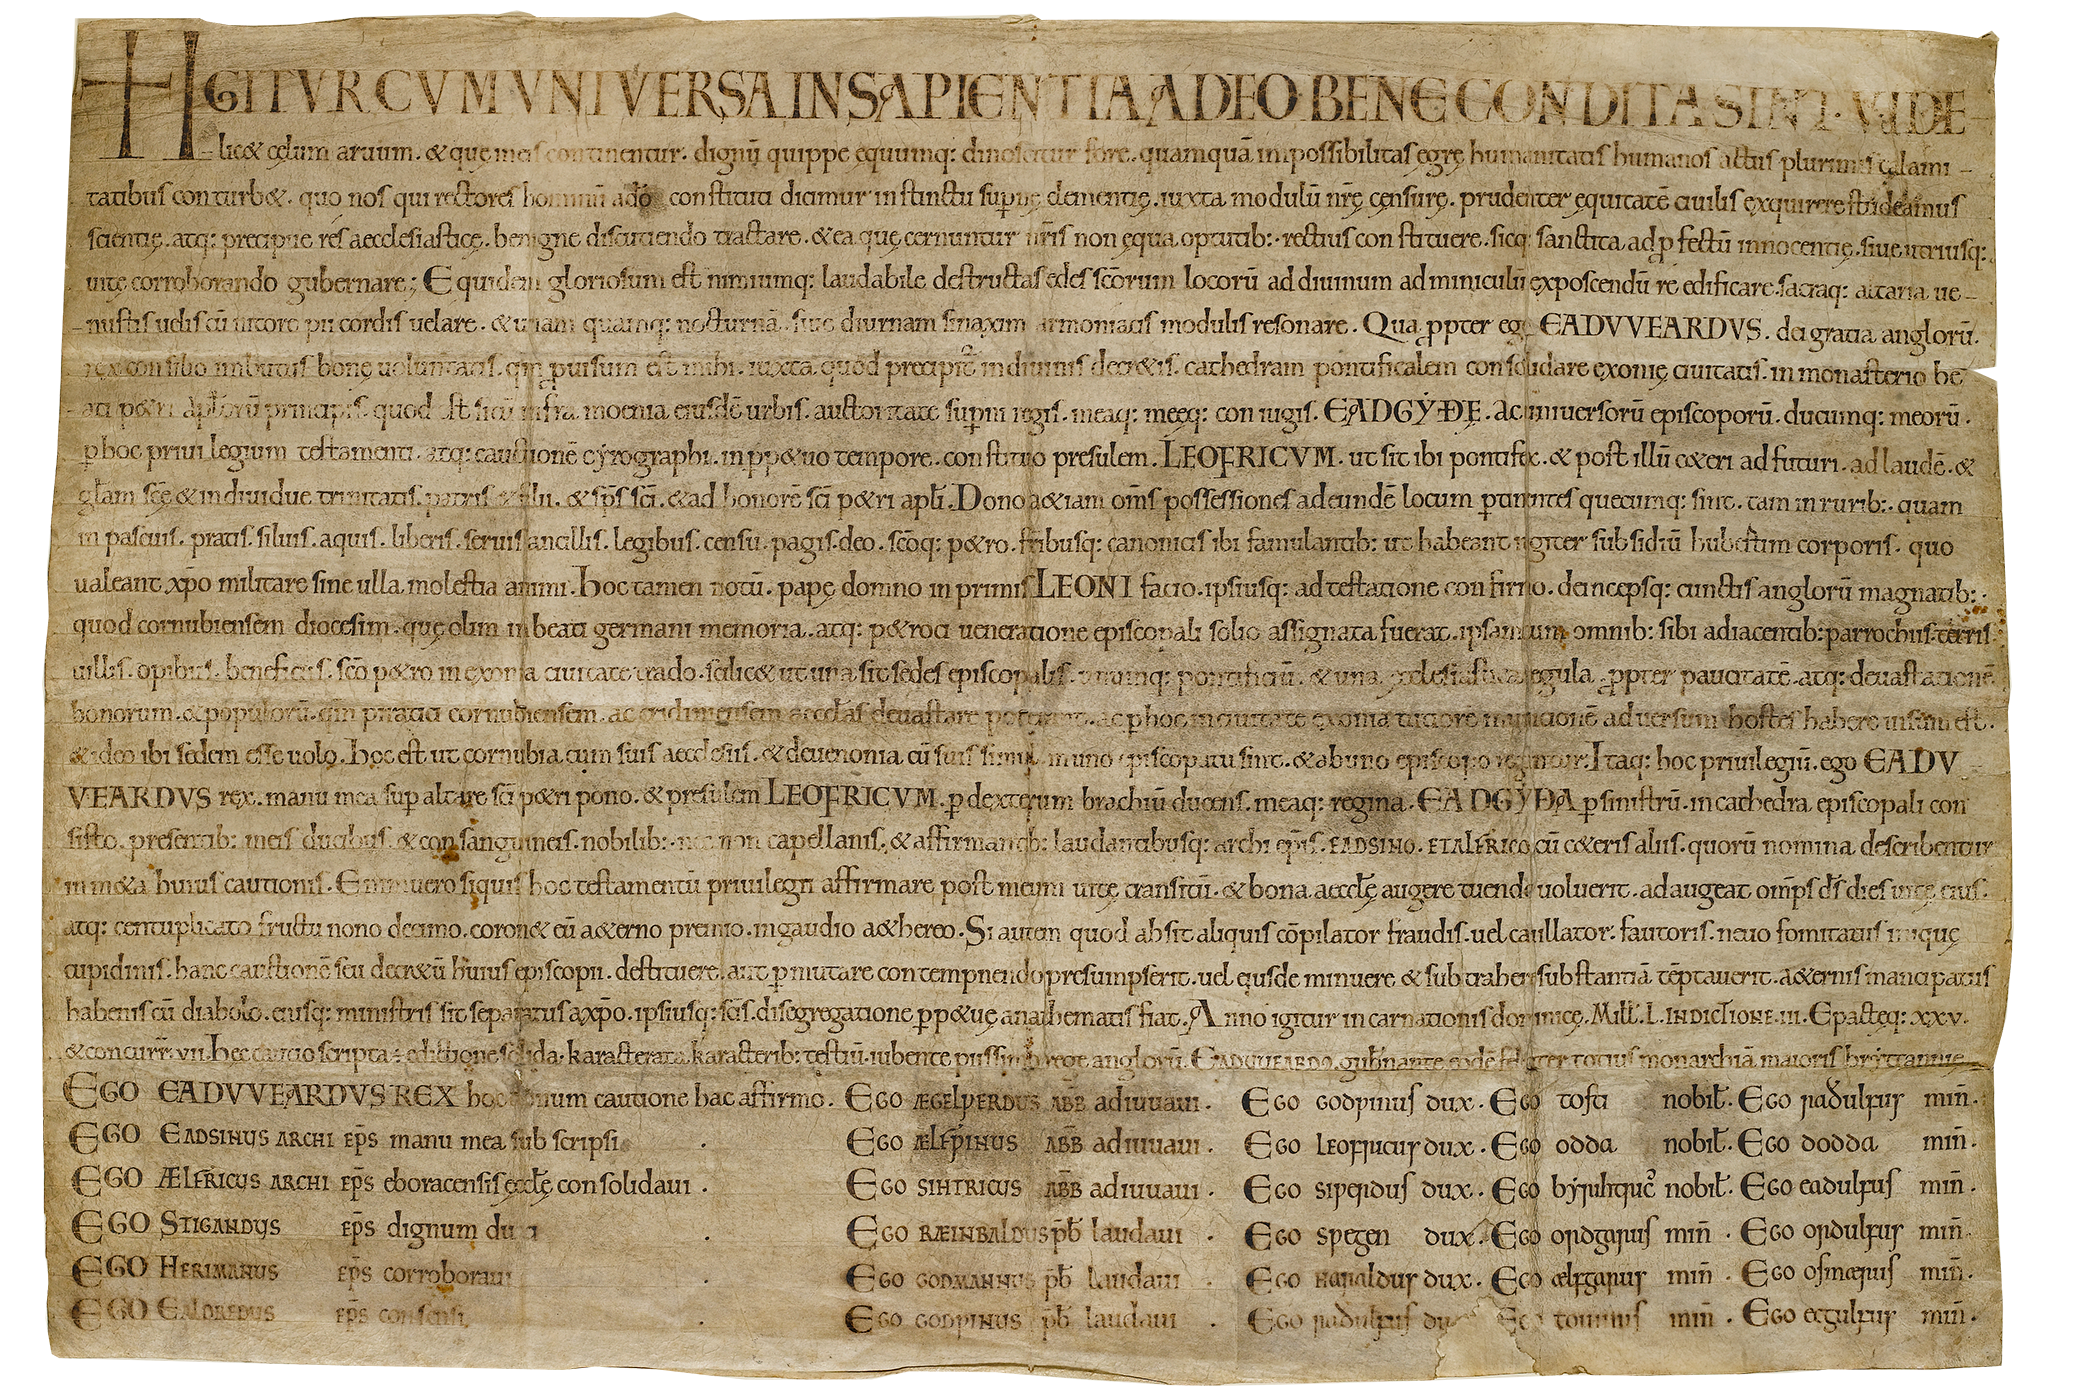 HGITVR CVM VNIVERSA IN SAPIENTIA A DEO BENE CONDITA SINT. VIDE
lic& cęlum aruum. & quę ineis continentur. dignū quippe equumq: dinoscitur fore. quamquā impossibilitas egrę humanitatis humanos actus plurimis calami
tatibus conturb&. quo nos qui rectores hominū a dō constituti dicimur instinctu supnę clementię. iuxta modulū nrę censurę. prudenter equitatē ciuilis exquirere studeamus
scientię. atq: precipue res aecclesiasticę. benigne discutiendo tractare. & ea quę cernuntur nris non ęqua optutib: rectius constituere. sicq: sanctita ad pfectū innocentię. siue utriusq:
uitę corroborando gubernare; Equidem gloriosum est nimiumq: laudabile destructas edes scōrum locorū ad diuinum adminiculū exposcendū reedificare. sacraq: altaria ue
nustis uelis cū nitore pii cordis uelare. & unam quamq: nocturnā siue diurnam sinaxim armoniacis modulis resonare. Qua ppter ego EADVVEARDVS. dei gratia anglorū.
rex consilio imbutus bonę uoluntatis. qm puisum est mihi. iuxta quod precipit in diuinis decr&is. cathedram pontificalem consolidare exonię ciuitatis. in monasterio be
ati p&ri aplorū principis. quod est situ infra moenia eiusdē urbis. auctoritate supni regis. meaq: meęq: coniugis. EADGYÐE. ac uniuersorū episcoporū. ducumq: meorū.
p hoc priuilegium testamenti. atq: caustionē cyrographi. in pp&uo tempore. constituo presulem. LEOFRICVM. ut sit ibi pontifex. & post illū c&eri adfuturi. ad laudē. &
glam scę & indiuidue trinitatis. patris & filii. & sps sci. & ad honorē sci p&ri apli. Dono a&iam oms possessiones ad eundē locum ptinentes quecumq: sint. tam in rurib:. quam
in pascuis. pratis. siluis. aquis. liberis. seruis ancillis. legibus. censu. pagis. deo. scōq: p&ro. fribusq: canonicis ibi famulantib: ut habeant iugiter subsidiū corporis. quo
ualeant xpo militare sine ulla molestia animi. Hoc tamen notū. papę domno inprimis LEONI facio. ipsiusq: adtestatione confirmo. deincepsq: cunctis anglorū magnatib:.
quod cornubiensem diocesim. quę olim in beati germani memoria. atq: p&roci ueneratione episcopali solio assignata fuerat. ipsam cum omnib: sibi adiacentib: parrochiis. terris
uillis. opibus. beneficiis. scō p&ro in exonia ciuitate trado. scilic& ut una sit sedes episcopalis. unumq: pontificiū. & una ecclesiastica regula. ppter paucitatē. atq: deuastationē
bonorum. & populorū. qm piratici cornubiensem. ac cridiensem aecclas deuastare poterant. ac p hoc in ciuitate exonia tutiorē munitionē aduersum hostes habere uisum est.
& ideo ibi sedem esse uolo. Hoc est ut cornubia cum suis aecclesiis. & deuenonia cū suis simul in uno episcopatu sint. & ab uno episcopo regantur. Itaq: hoc priuilegiū. ego EADV
VEARDVS rex. manu mea sup altare sci p&ri pono. & presulem LEOFRICVM. p dexterum brachiū ducens. meaq: regina. EADGYÐA p sinistrū. in cathedra episcopali con
sisto. presentib: meis ducibus. & consanguineis. nobilib:. nec non capellanis. & affirmantib: laudantibusq: archi epis. EADSINO. ET ALFRICO cū c&eris aliis. quorū nomina describentur
in m&a huius cautionis. Enimuero siquis hoc testamentū priuilegii affirmare post meum uitę transitū. & bona aecclę augere tuendo uoluerit. adaugeat omps ds dies uitę eius.
atq: centuplicato fructu nono decimo. coron& eū a&erno premio. in gaudio a&hereo. Si autem quod absit aliquis cōpilator fraudis. uel cauillator. fautoris. neuo fomitatus iniquę
cupidinis. hanc caustionē seu decr&ū huius episcopii. destituere. aut pmutare contempnendo presumpserit. uel eiusde minuere & subtrahere substantiā tēptauerit. a&ernis mancipatus
habenis cū diabolo. eiusq: ministris sit separatus a xpo. ipsiusq: scis. disegregatione pp&uę anathematis fiat. Anno igitur incarnationis dominicę. Mill. L. INDICTIONE. III. Epacteq: XXV.
& concurr. VII. Hec cautio scripta & edictione solida. karacterata karacterib: testiū. iubente piissimo rege anglorū. EADVVEARDO. gubnante eodē feliciter totius monarchiā maioris bryttannię
EGO EADVVEARDVS REX hoc donum cautione hac affirmo.
EGO EADSINUS ARCHI EPS manu mea subscripsi .
EGO ÆLFRICUS ARCHI EPS eboracensis ęcclę consolidaui .
EGO STIGANDUS EPS dignum duxi .
EGO HERIMANUS EPS corroboraui .
EGO EALDREDUS EPS consensi .
EGO ÆGELPERDUS ABB adiuuaui .
EGO ÆLFPINUS ABB adiuuaui .
EGO SIHTRICUS ABB adiuuaui .
EGO RÆINBALDUS pb laudaui .
EGO GODMANNUS pb laudaui .
EGO GODPINUS pb laudaui .
EGO godpinus dux .
EGO leofricus dux .
EGO siperdus dux .
EGO spegen dux .
EGO haraldus dux .
EGO radulfus dux
EGO tosti nobil .
EGO odda nobil .
EGO byrihtric nobil .
EGO ordgarus min .
EGO ælfgarus min .
EGO min .
EGO radulfus min .
EGO dodda min .
EGO eadulfus min .
EGO ordulfus min .
EGO osmærus min .
EGO ecgulfus min .